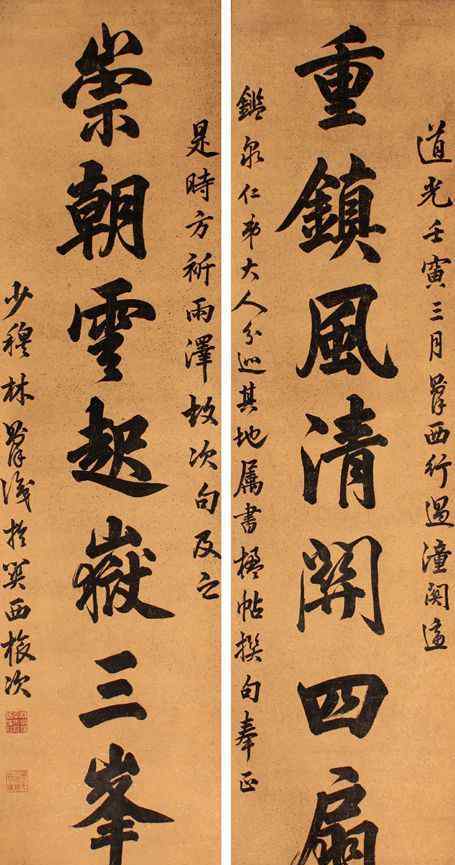 道光壬寅三月則徐西行過潼関適
重鎮風清関四扇
鑑泉仁弟大人分巡其地属書楹帖撰句奉正
是時方祈雨澤故次句及之
崇朝雲起嶽三峯
少穆林則徐識於關西旅次